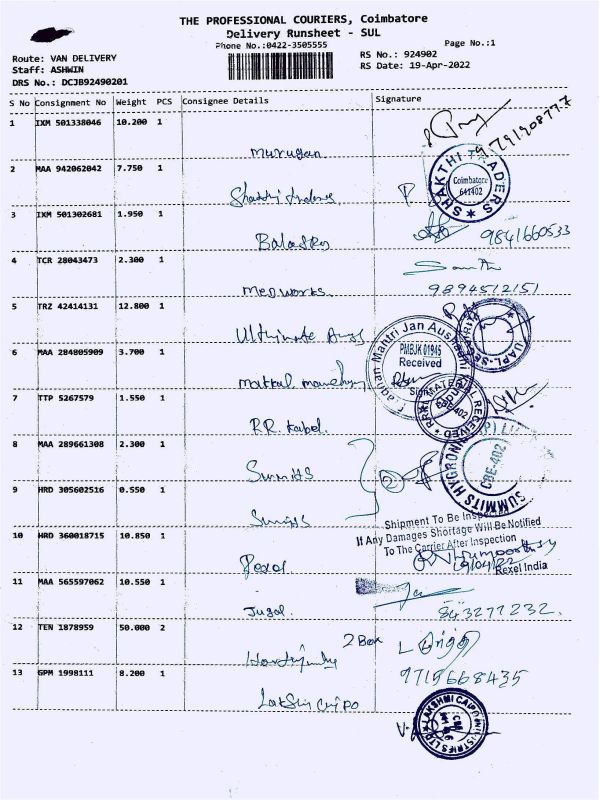 THE PROFESSIONAL COURIERS, Coimbatore
Delivery Runsheet - SUL
Phone No.:0422-3505555
Page No.:1
Route: VAN DELIVERY
RS No.: 924902
Staff: ASHWIN
RS Date: 19-Apr-2022
DRS No.: DCJB92490201
S No Consignment No Weight PCS Consignee Details Signature
1 IXM 501338046 10.200 1
Murugan
9791908777
2 MAA 942062042 7.750 1
SHAKTHI TRADERS
Coimbatore
641402
3 IXM 501302681 1.950 1
9841660533
4 TCR 28043473 2.300 1
Medworks
9894512151
5 TRZ 42414131 12.800 1
Ultimate
6 MAA 284805909 3.700 1
Mantri Jan Aushadhi
PMBJK 01945
Received
7 TTP 5267579 1.550 1
R.R. Kabel
MATERIAL RECEIVED
CBE-402
8 MAA 289661308 2.300 1
Summits
2
SUMMITS HYGRONICS (P) L
CBE-402
9 HRD 305602516 0.550 1
Summits
Shipment To Be Inspected
If Any Damages Shortage Will Be Notified
To The Carrier After Inspection
10 HRD 360018715 10.850 1
Rexel
19/04/22
Rexel India
11 MAA 565597062 10.550 1
Jugal
843277232.
12 TEN 1878959 50.000 2
2 Box
13 GPM 1998111 8.200 1
9715668435
LAKSHMI